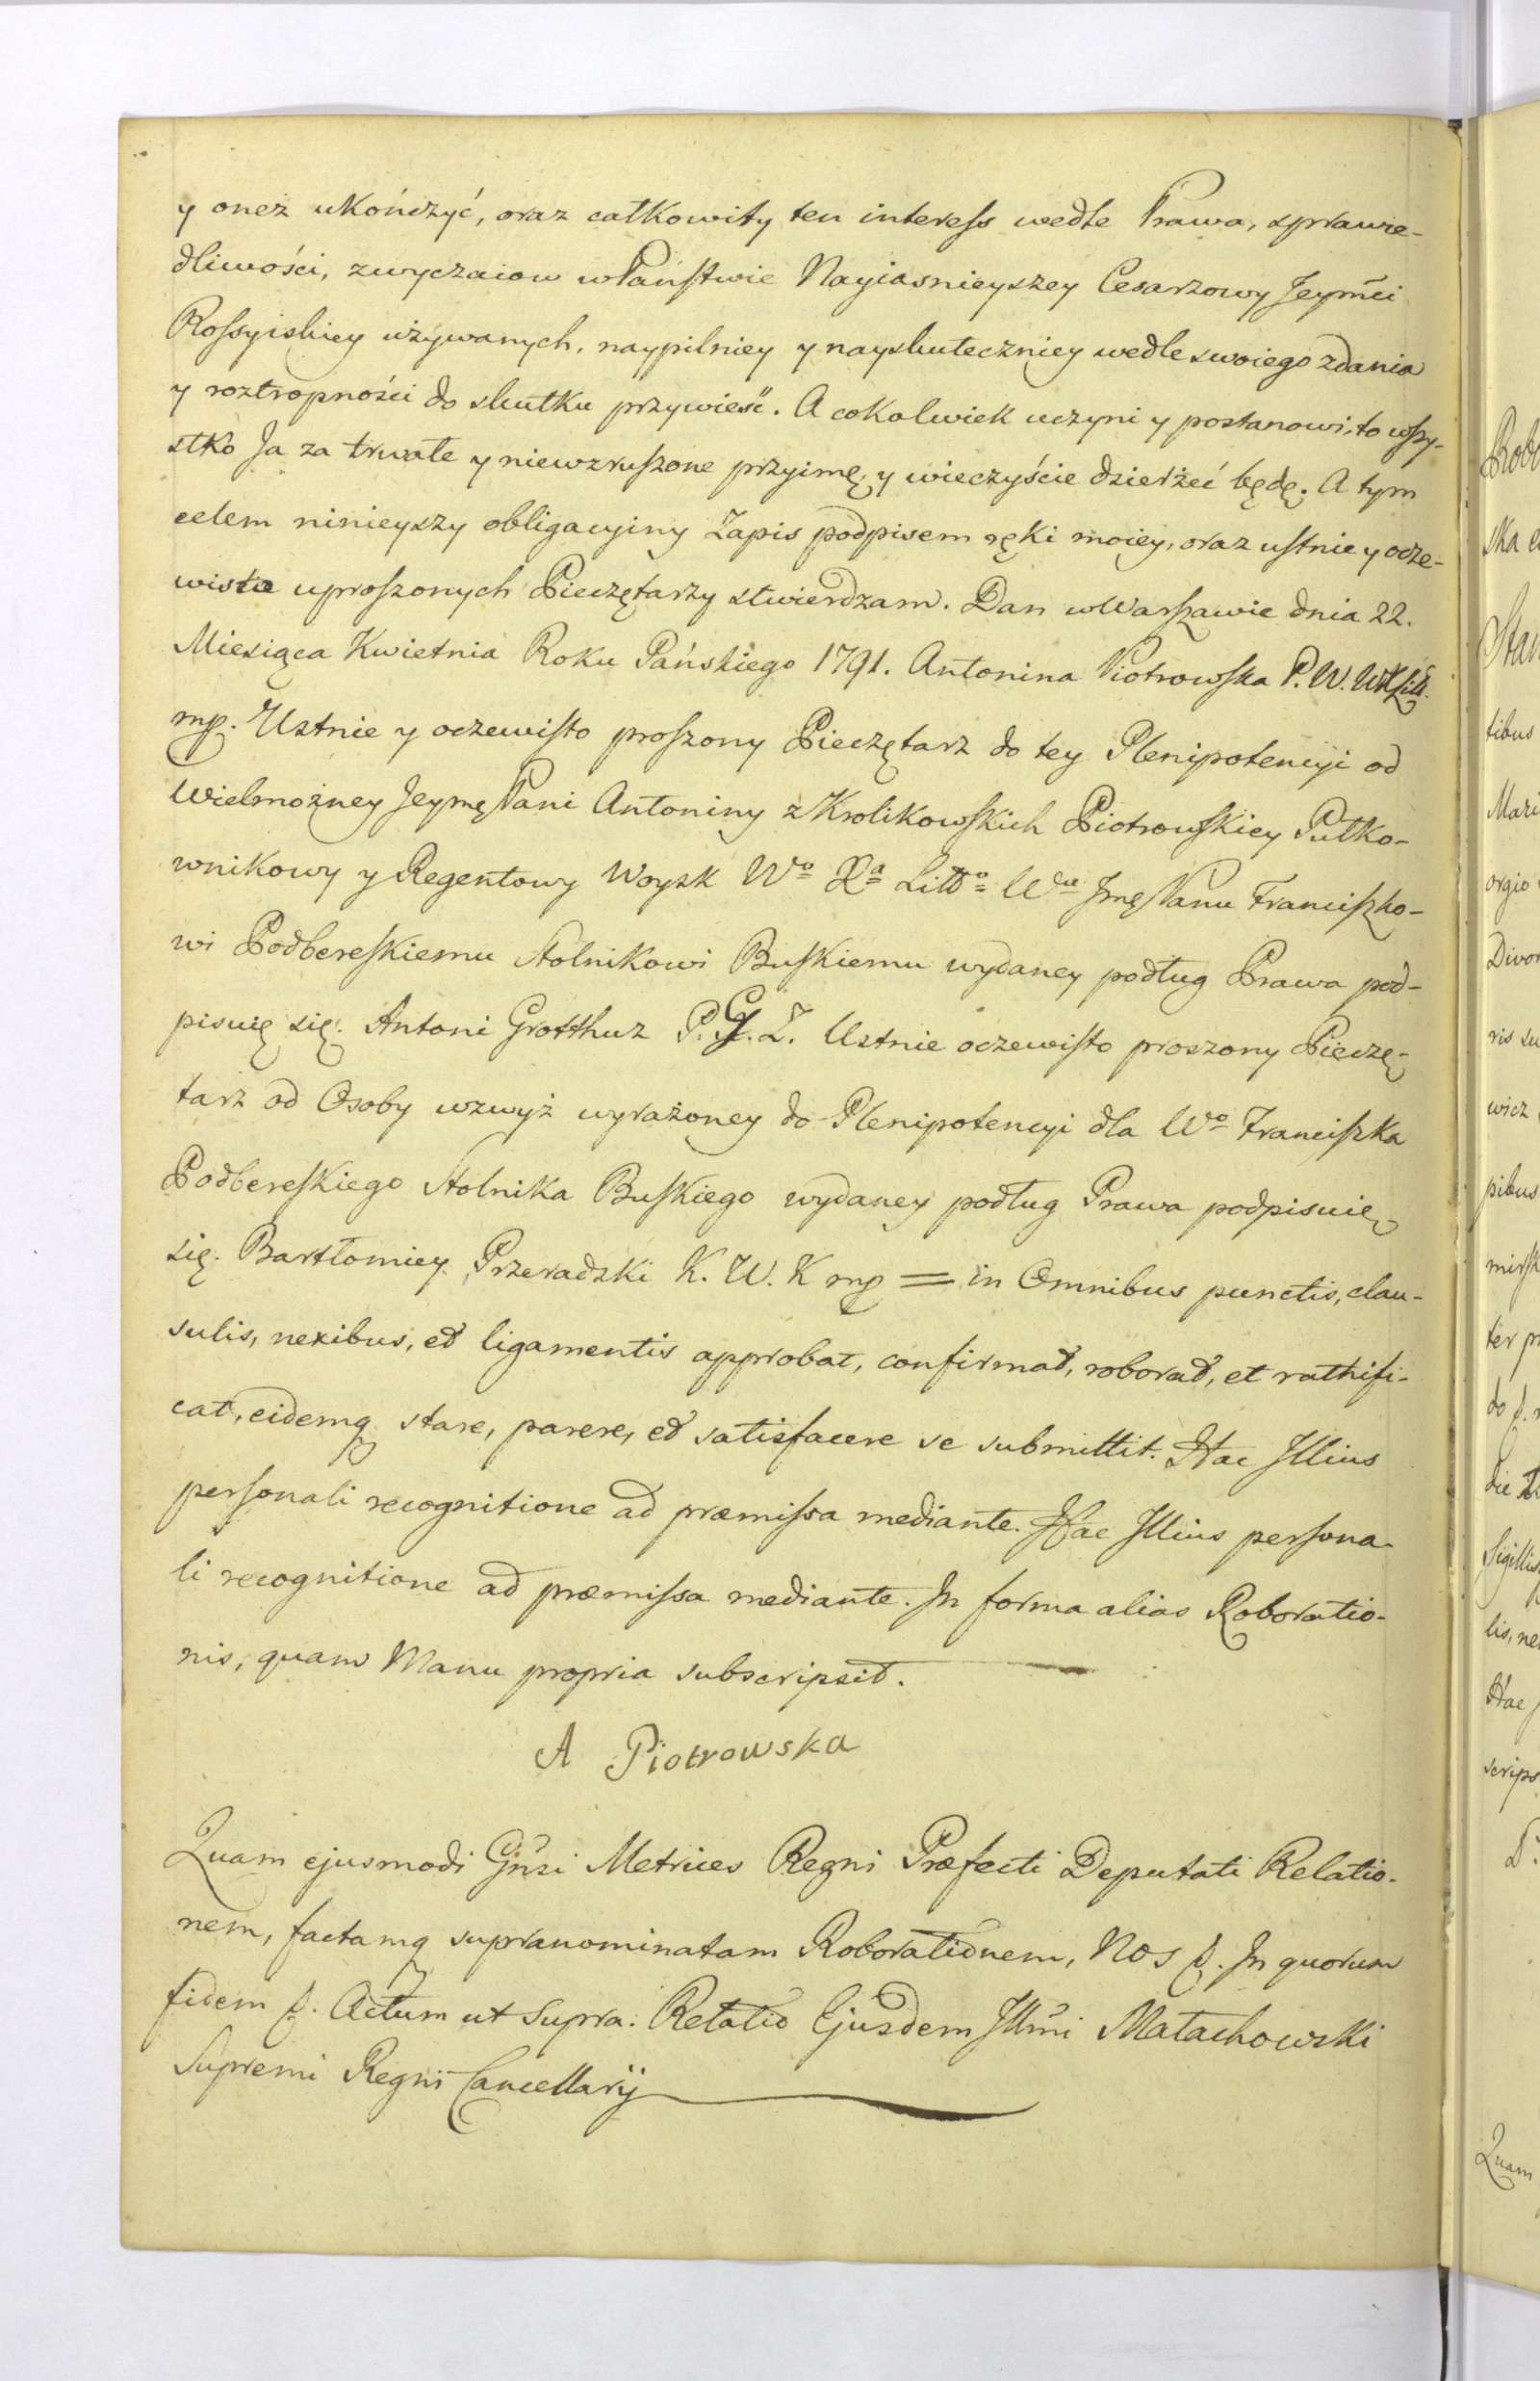 y oneż ukończyć, oraz całkowity ten interess wedle Prawa, sprawie-
dliwości, zwyczaiow w Państwie Nayiasnieyszey Cesarzowy Jeymci
Rossyiskiey używanych, naypilniey y nayskuteczniey wedle swoiego zdania
y roztropności do skutku przywieść. A cokolwiek uczyni y postanowi, to wszy-
stko Ja za trwałe y niewzruszone przyimę, y wieczyście dzierżeć będę. A tym
celem ninieyszy obligacyiny Zapis podpisem ręki moiey, oraz ustnie y ocze-
wisto uproszonych Pieczętarzy stwierdzam. Dan w Warszawie dnia 22.
Miesiąca Kwietnia Roku Pańskiego 1791. Antonina Piotrowska P. W.
mp. Ustnie y oczewisto proszony Pieczętarz do tey Plenipotencyi od
Wielmożney Jeymę Pani Antoniny z Krolikowskich Piotrowskiey Pułko-
wnikowy y Regentowy Woysk Wo Xa Litto Wu Jmę Panu Franciszko-
wi Podbereskiemu Stolnikowi Buskiemu wydaney podług Prawa pod-
pisuię się. Antoni Grotthuz P. G. Z. Ustnie oczewisto proszony Pieczę-
tarz od Osoby wzwyż wyrażoney do Plenipotencyi dla Wo Franciszka
Podbereskiego Stolnika Buskiego wydaney podług Prawa podpisuię
się. Bartłomiey Przeradzki K. W. K mp = in Omnibus punctis, clau-
sulis, nexibus, et ligamentis approbat, confirmat, roborat, et rathifi-
cat, eidemq stare, parere, et satisfacere se submittit. Hac Illius
personali recognitione ad præmissa mediante. Hac Illius persona-
li recognitione ad præmissa mediante. In forma alias Roboratio-
nis, quam Manu propria subscripsit.
A Piotrowska
Quam ejusmodi Gnsi Metrices Regni Præfecti Deputati Relatio-
nem, factamq supranominatam Roborationem, Nos p. In quorum
fidem p. Actum ut Supra. Relatio Ejusdem Illmi Małachowski
Supremi Regni Cancellarij